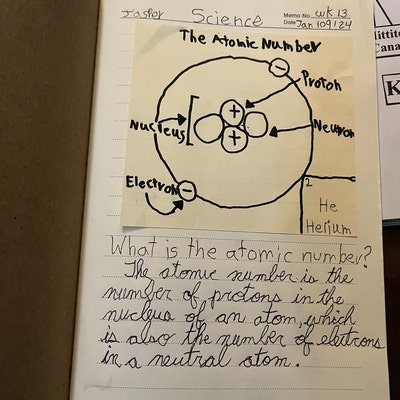 Jaspor Science Memo No. wk 13
Date Jan 109/24
The Atomic Number
−
Proton
+
Nucleus
Neutron
+
Electron
−
2
He
Helium
What is the atomic number?
The atomic number is the
number of protons in the
nucleus of an atom, which
is also the number of electrons
in a neutral atom.
Hittite
Cana
K